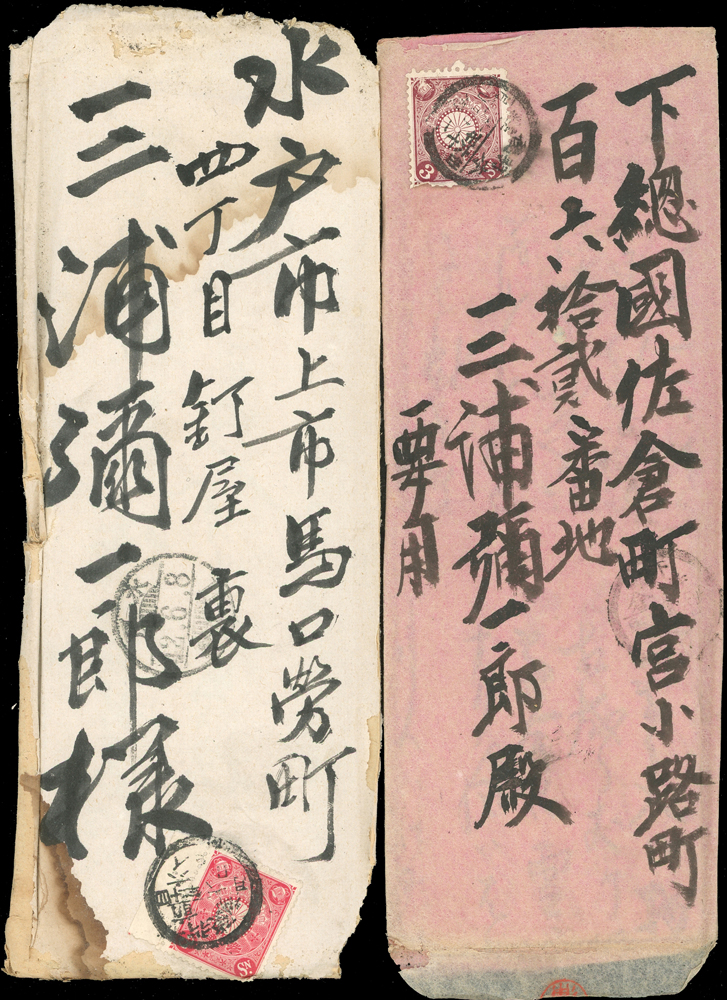 下總國佐倉町宮小路町
百六拾貳番地
三浦彌一郎殿
要用
3
Sⁿ
水戸市上市馬口勞町
四丁目 釘屋裏
三浦彌一郎様
2.6.8
Sⁿ